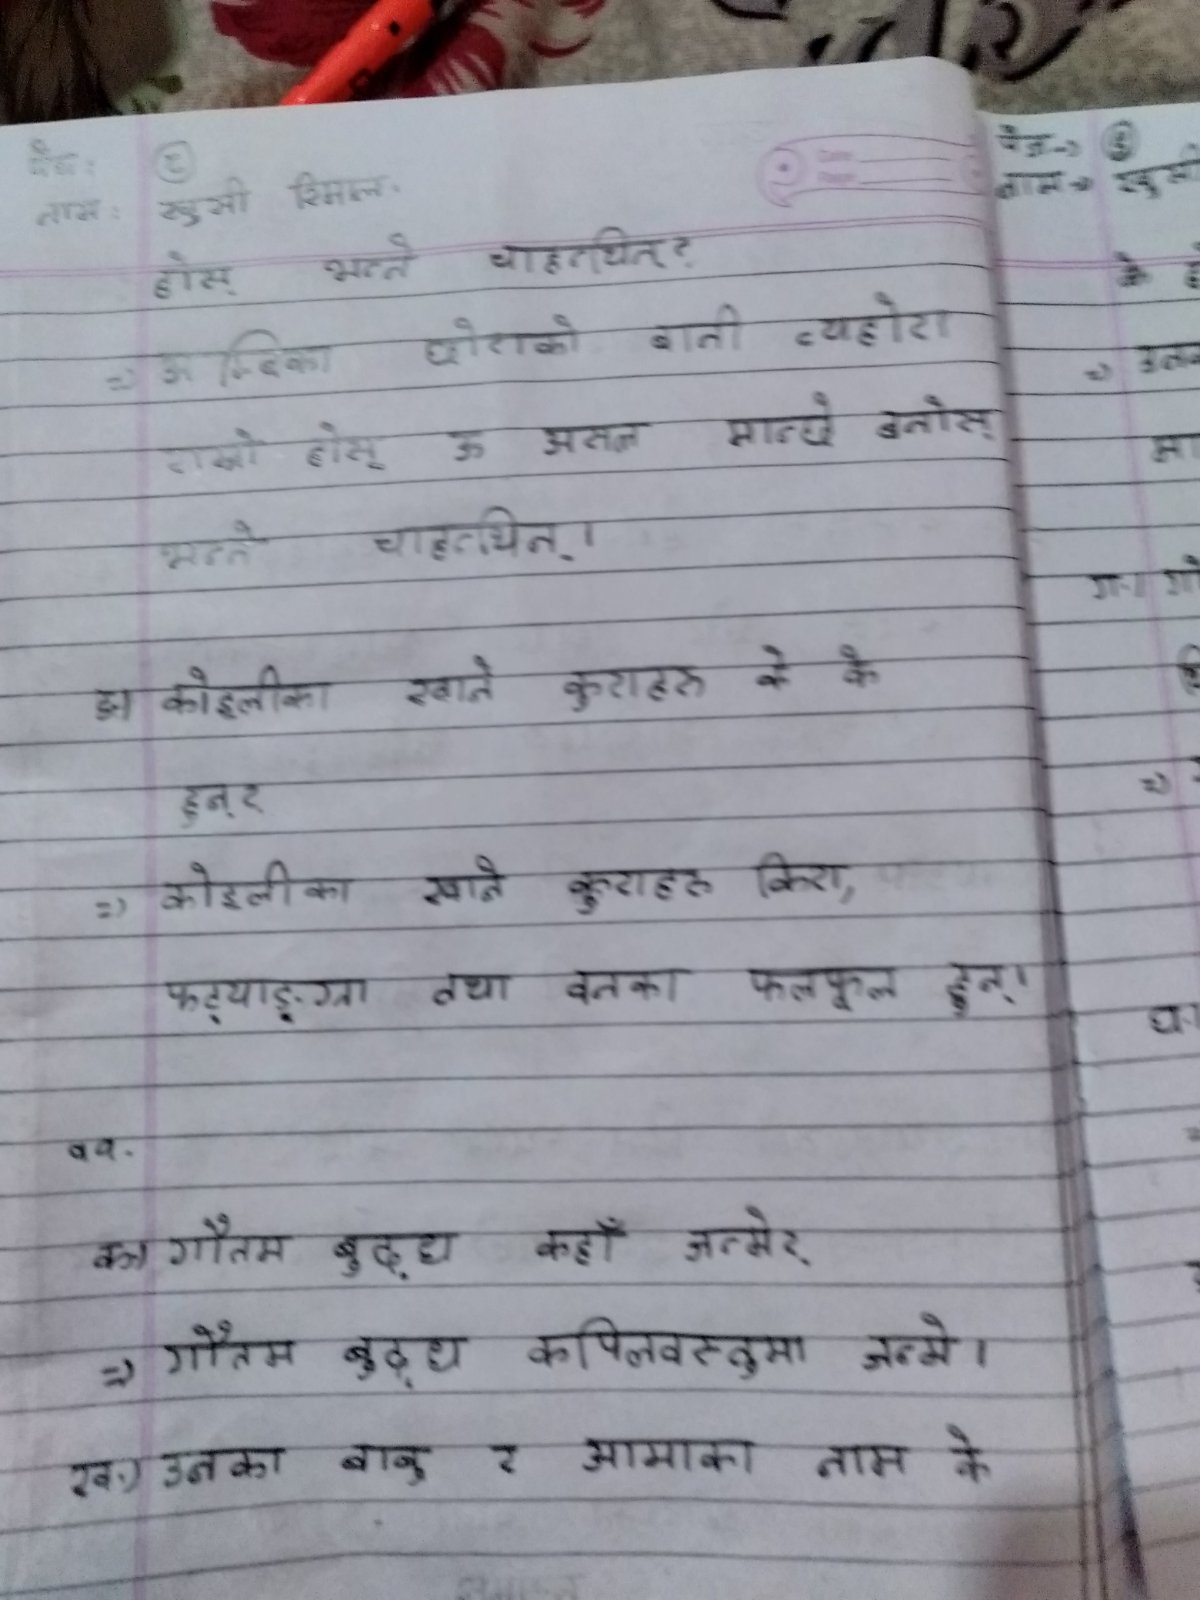 पेज: ८
नाम: खुसी रिमाल
होस् भन्ने चाहन्थिन्?
=) अम्बिका छोराको बानी व्यहोरा
राम्रो होस् ऊ असल मान्छे बनोस्
भन्ने चाहन्थिन्।
ङ) कोइलीका खाने कुराहरु के के
हुन्?
=) कोइलीका खाने कुराहरु किरा,
फट्याङ्ग्रा तथा वनका फलफूल हुन्।
क) गौतम बुद्ध कहाँ जन्मे?
=) गौतम बुद्ध कपिलवस्तुमा जन्मे।
ख.) उनका बाबु र आमाका नाम के
पेज=)
नाम=) खुसी
के
=)
ग.)
=)
घ.)